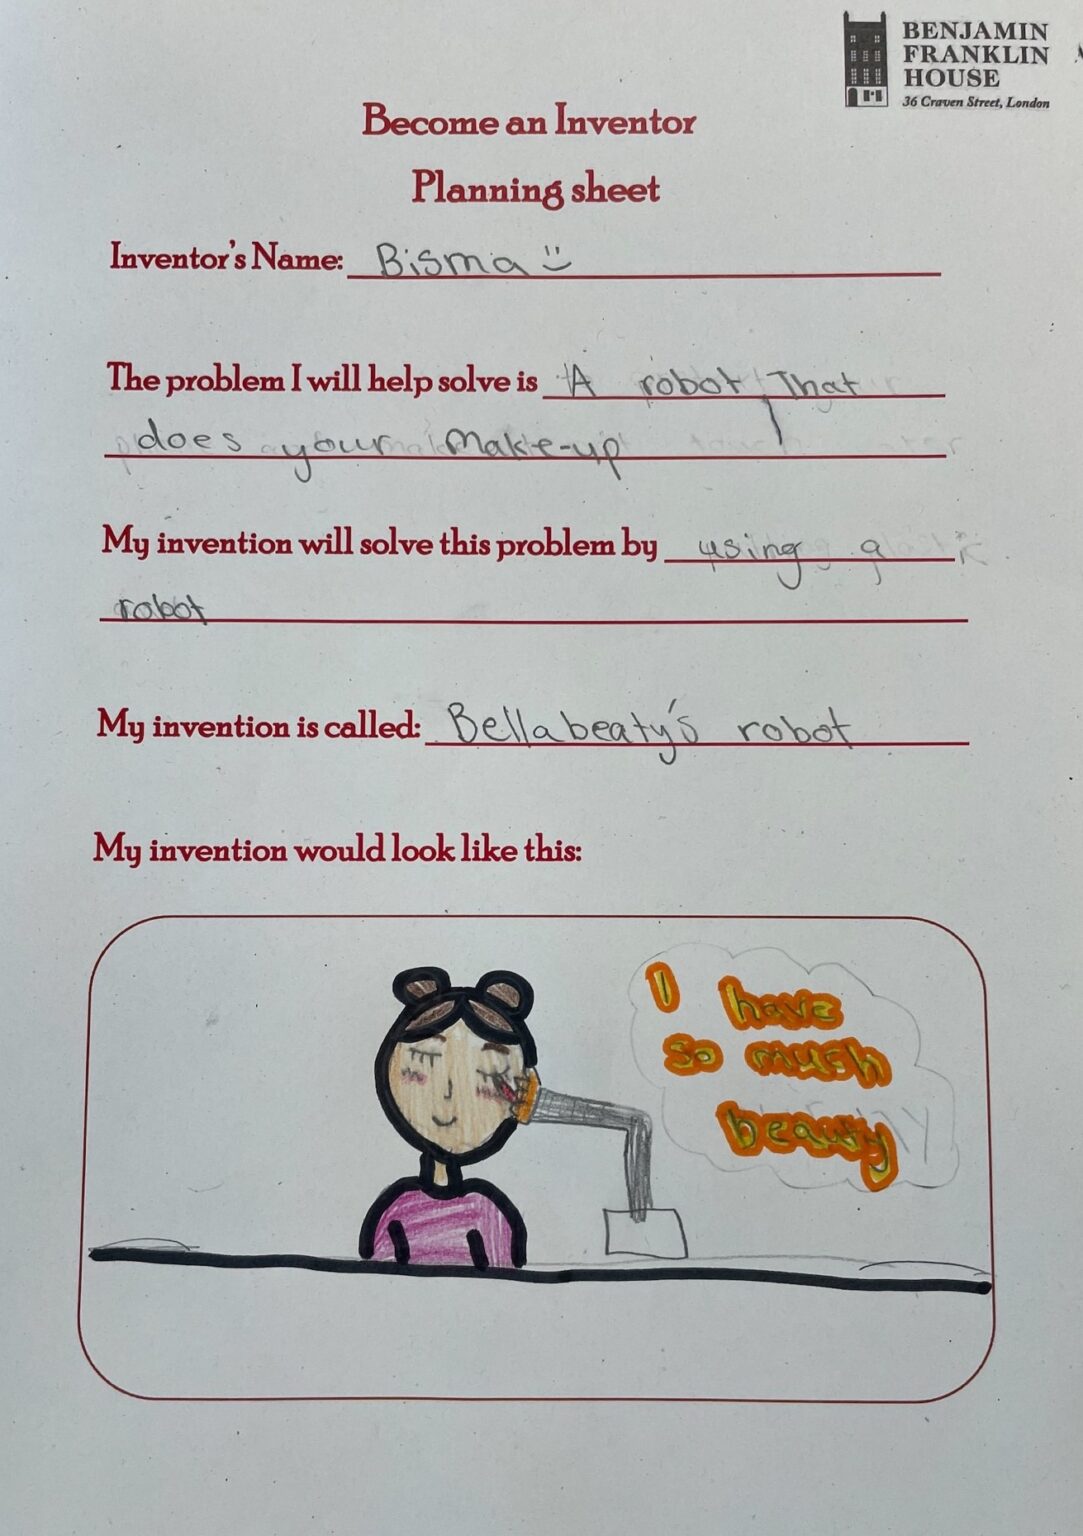 BENJAMIN
FRANKLIN
HOUSE
36 Craven Street, London
Become an Inventor
Planning sheet
Inventor's Name: Bisma
The problem I will help solve is A robot That
does your Make-up
My invention will solve this problem by using a
robot
My invention is called: Bellabeaty's robot
My invention would look like this:
I have
so much
beauty